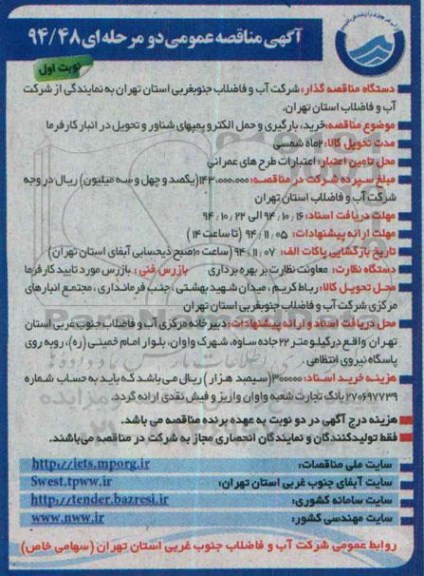 آگهی مناقصه عمومی دو مرحله ای ۹۴/۴۸
نوبت اول
دستگاه مناقصه گذار: شرکت آب و فاضلاب جنوبغربی استان تهران به نمایندگی از شرکت
آب و فاضلاب استان تهران.
موضوع مناقصه: خرید، بارگیری و حمل الکترو پمپهای شناور و تحویل در انبار کارفرما
مدت تحویل کالا: ۲ماه شمسی
محل تامین اعتبار: اعتبارات طرح های عمرانی
مبلغ سپرده شرکت در مناقصه: ۱۴۳.۰۰۰.۰۰۰(یکصد و چهل و سه میلیون) ریال در وجه
شرکت آب و فاضلاب استان تهران
مهلت دریافت اسناد: ۱۶ /۱۰ /۹۴ الی ۲۲ /۱۰ /۹۴
مهلت ارائه پیشنهادات: ۰۵ /۱۱ /۹۴ (تا ساعت ۱۴)
تاریخ بازگشایی پاکات الف: ۰۷ /۱۱ /۹۴ (ساعت ۱۰صبح ذیحسابی آبفای استان تهران)
دستگاه نظارت: معاونت نظارت بر بهره برداری بازرس فنی: بازرس مورد تایید کارفرما
محل تحویل کالا: رباط کریم، میدان شهید بهشتی، جنب فرمانداری، مجتمع انبارهای
مرکزی شرکت آب و فاضلاب جنوبغربی استان تهران
محل دریافت اسناد و ارائه پیشنهادات: دبیرخانه مرکزی آب و فاضلاب جنوب غربی استان
تهران واقع درکیلومتر ۲۲ جاده ساوه، شهرک واوان، بلوار امام خمینی (ره)، روبه روی
پاسگاه نیروی انتظامی
هزینه خرید اسناد: ۳۰۰۰۰۰(سیصد هزار) ریال می باشد که باید به حساب شماره
۲۷۰۶۹۷۷۳۹ بانک تجارت شعبه واوان واریز و فیش نقدی ارائه گردد.
هزینه درج آگهی در دو نوبت به عهده برنده مناقصه می باشد.
فقط تولیدکنندگان و نمایندگان انحصاری مجاز به شرکت در مناقصه می‌باشند.
سایت ملی مناقصات: http://iets.mporg.ir
سایت آبفای جنوب غربی استان تهران: Swest.tpww.ir
سایت سامانه کشوری: http://tender.bazresi.ir
سایت مهندسی کشور: www.nww.ir
روابط عمومی شرکت آب و فاضلاب جنوب غربی استان تهران (سهامی خاص)